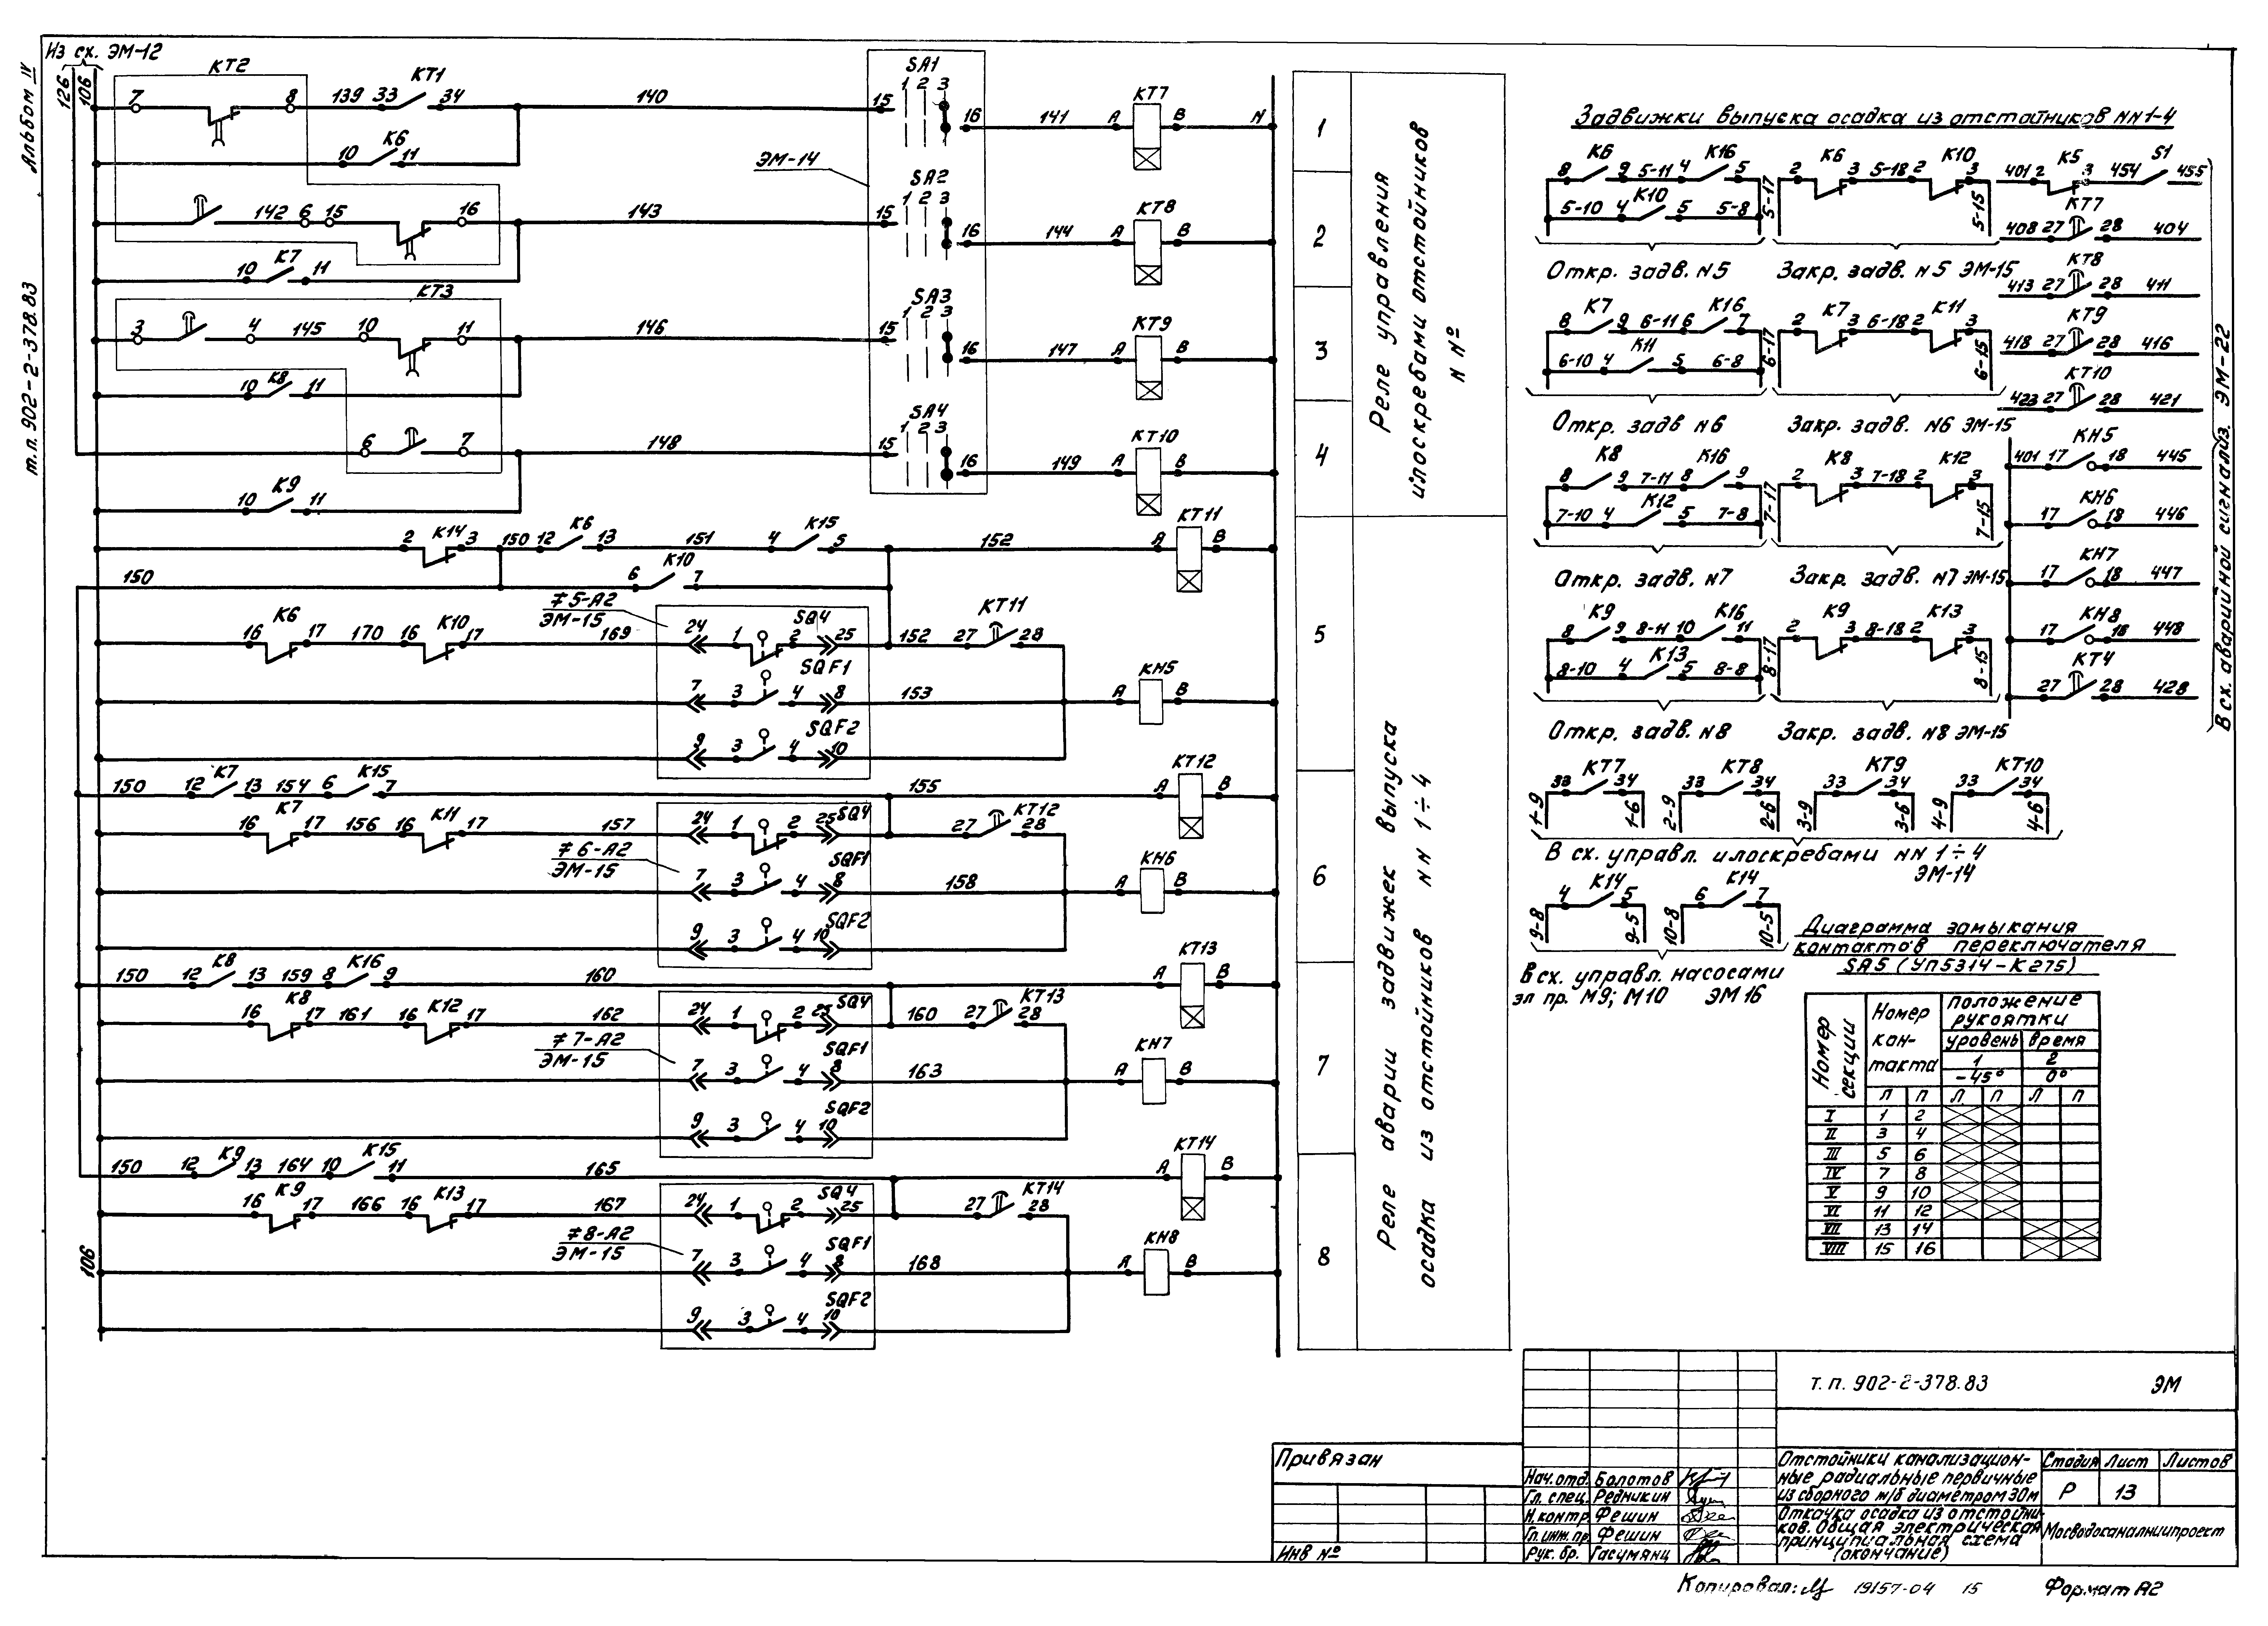 Альбом IV
т.п. 902-2-378.83
Из сх. ЭМ-12
126
106
КТ2
7
8
139
33
КТ1
34
140
15
SA1
1 2 3
16
141
A
КТ7
B
N
10
К6
11
ЭМ-14
142
6
15
16
143
15
SA2
1 2 3
16
144
A
КТ8
B
10
К7
11
КТ3
3
4
145
10
11
146
15
SA3
1 2 3
16
147
A
КТ9
B
10
К8
11
6
7
148
15
SA4
1 2 3
16
149
A
КТ10
B
10
К9
11
2
К14
3
150
12
К6
13
151
4
К15
5
152
A
КТ11
B
150
6
К10
7
≠5-А2
ЭМ-15
16
К6
17
170
16
К10
17
169
24
1
SQ4
2
25
152
27
КТ11
28
7
3
SQF1
4
8
153
A
КН5
B
9
3
SQF2
4
10
150
12
К7
13
154
6
К15
7
155
A
КТ12
B
16
К7
17
156
16
К11
17
157
24
1
2
25
SQ4
27
КТ12
28
≠6-А2
ЭМ-15
7
3
4
SQF1
8
158
A
КН6
B
9
3
4
SQF2
10
150
12
К8
13
159
8
К16
9
160
A
КТ13
B
16
К8
17
161
16
К12
17
162
24
1
2
25
SQ4
160
27
КТ13
28
≠7-А2
ЭМ-15
7
3
4
SQF1
8
163
A
КН7
B
9
3
4
SQF2
10
150
12
К9
13
164
10
К15
11
165
A
КТ14
B
16
К9
17
166
16
К13
17
167
24
1
2
SQ4
25
27
КТ14
28
≠8-А2
ЭМ-15
106
7
3
4
SQF1
8
168
A
КН8
B
9
3
4
SQF2
10
1
2
3
4
Реле управления
илоскребами отстойников
N Nº
5
6
7
8
Реле аварии задвижек выпуска
осадка из отстойников NN 1÷4
Задвижки выпуска осадка из отстойников NN 1-4
8 К6 9 5-11 4 К16 5
5-10 4 К10 5 5-8
5-17
2 К6 3 5-18 2 К10 3
5-15
Откр. задв. N5
Закр. задв. N5 ЭМ-15
8 К7 9 6-11 6 К16 7
6-10 4 К11 5 6-8
6-17
2 К7 3 6-18 2 К11 3
6-15
Откр. задв N6
Закр. задв. N6 ЭМ-15
8 К8 9 7-11 8 К16 9
7-10 4 К12 5 7-8
7-17
2 К8 3 7-18 2 К12 3
7-15
Откр. задв. N7
Закр. задв. N7 ЭМ-15
8 К9 9 8-11 10 К16 11
8-10 4 К13 5 8-8
8-17
2 К9 3 8-18 2 К13 3
8-15
Откр. задв. N8
Закр. задв. N8 ЭМ-15
401 2 К5 3 454 S1 455
408 27 КТ7 28 404
413 27 КТ8 28 411
418 27 КТ9 28 416
423 27 КТ10 28 421
401 17 КН5 18 445
17 КН6 18 446
17 КН7 18 447
17 КН8 18 448
27 КТ4 28 428
В сх. аварийной сигнализ. ЭМ-22
1-9 33 КТ7 34 1-6
2-9 33 КТ8 34 2-6
3-9 33 КТ9 34 3-6
4-9 33 КТ10 34 4-6
В сх. управл. илоскребами NN 1÷4
ЭМ-14
9-8 4 К14 5 9-5
10-8 6 К14 7 10-5
В сх. управл. насосами
эл пр. М9; М10 ЭМ 16
Диаграмма замыкания
контактов переключателя
SA5 (УП5314-К275)
Номер секции
Номер кон-такта
положение рукоятки
уровень время
1 2
-45° 0°
Л П Л П Л П
I 1 2
II 3 4
III 5 6
IV 7 8
V 9 10
VI 11 12
VII 13 14
VIII 15 16
т.п. 902-2-378.83 ЭМ
Привязан
Инв Nº
Нач.отд. Болотов
Гл. спец. Редникин
Н.контр. Фешин
Гл.инж.пр. Фешин
Рук. бр. Гасумянц
Отстойники канализацион-
ные радиальные первичные
из сборного ж/б диаметром 30м
Стадия Лист Листов
Р 13
Откачка осадка из отстойни-
ков. Общая электрическая
принципиальная схема
(окончание)
Мосводоканалниипроект
Копировал: 19157-04 15 Формат А2